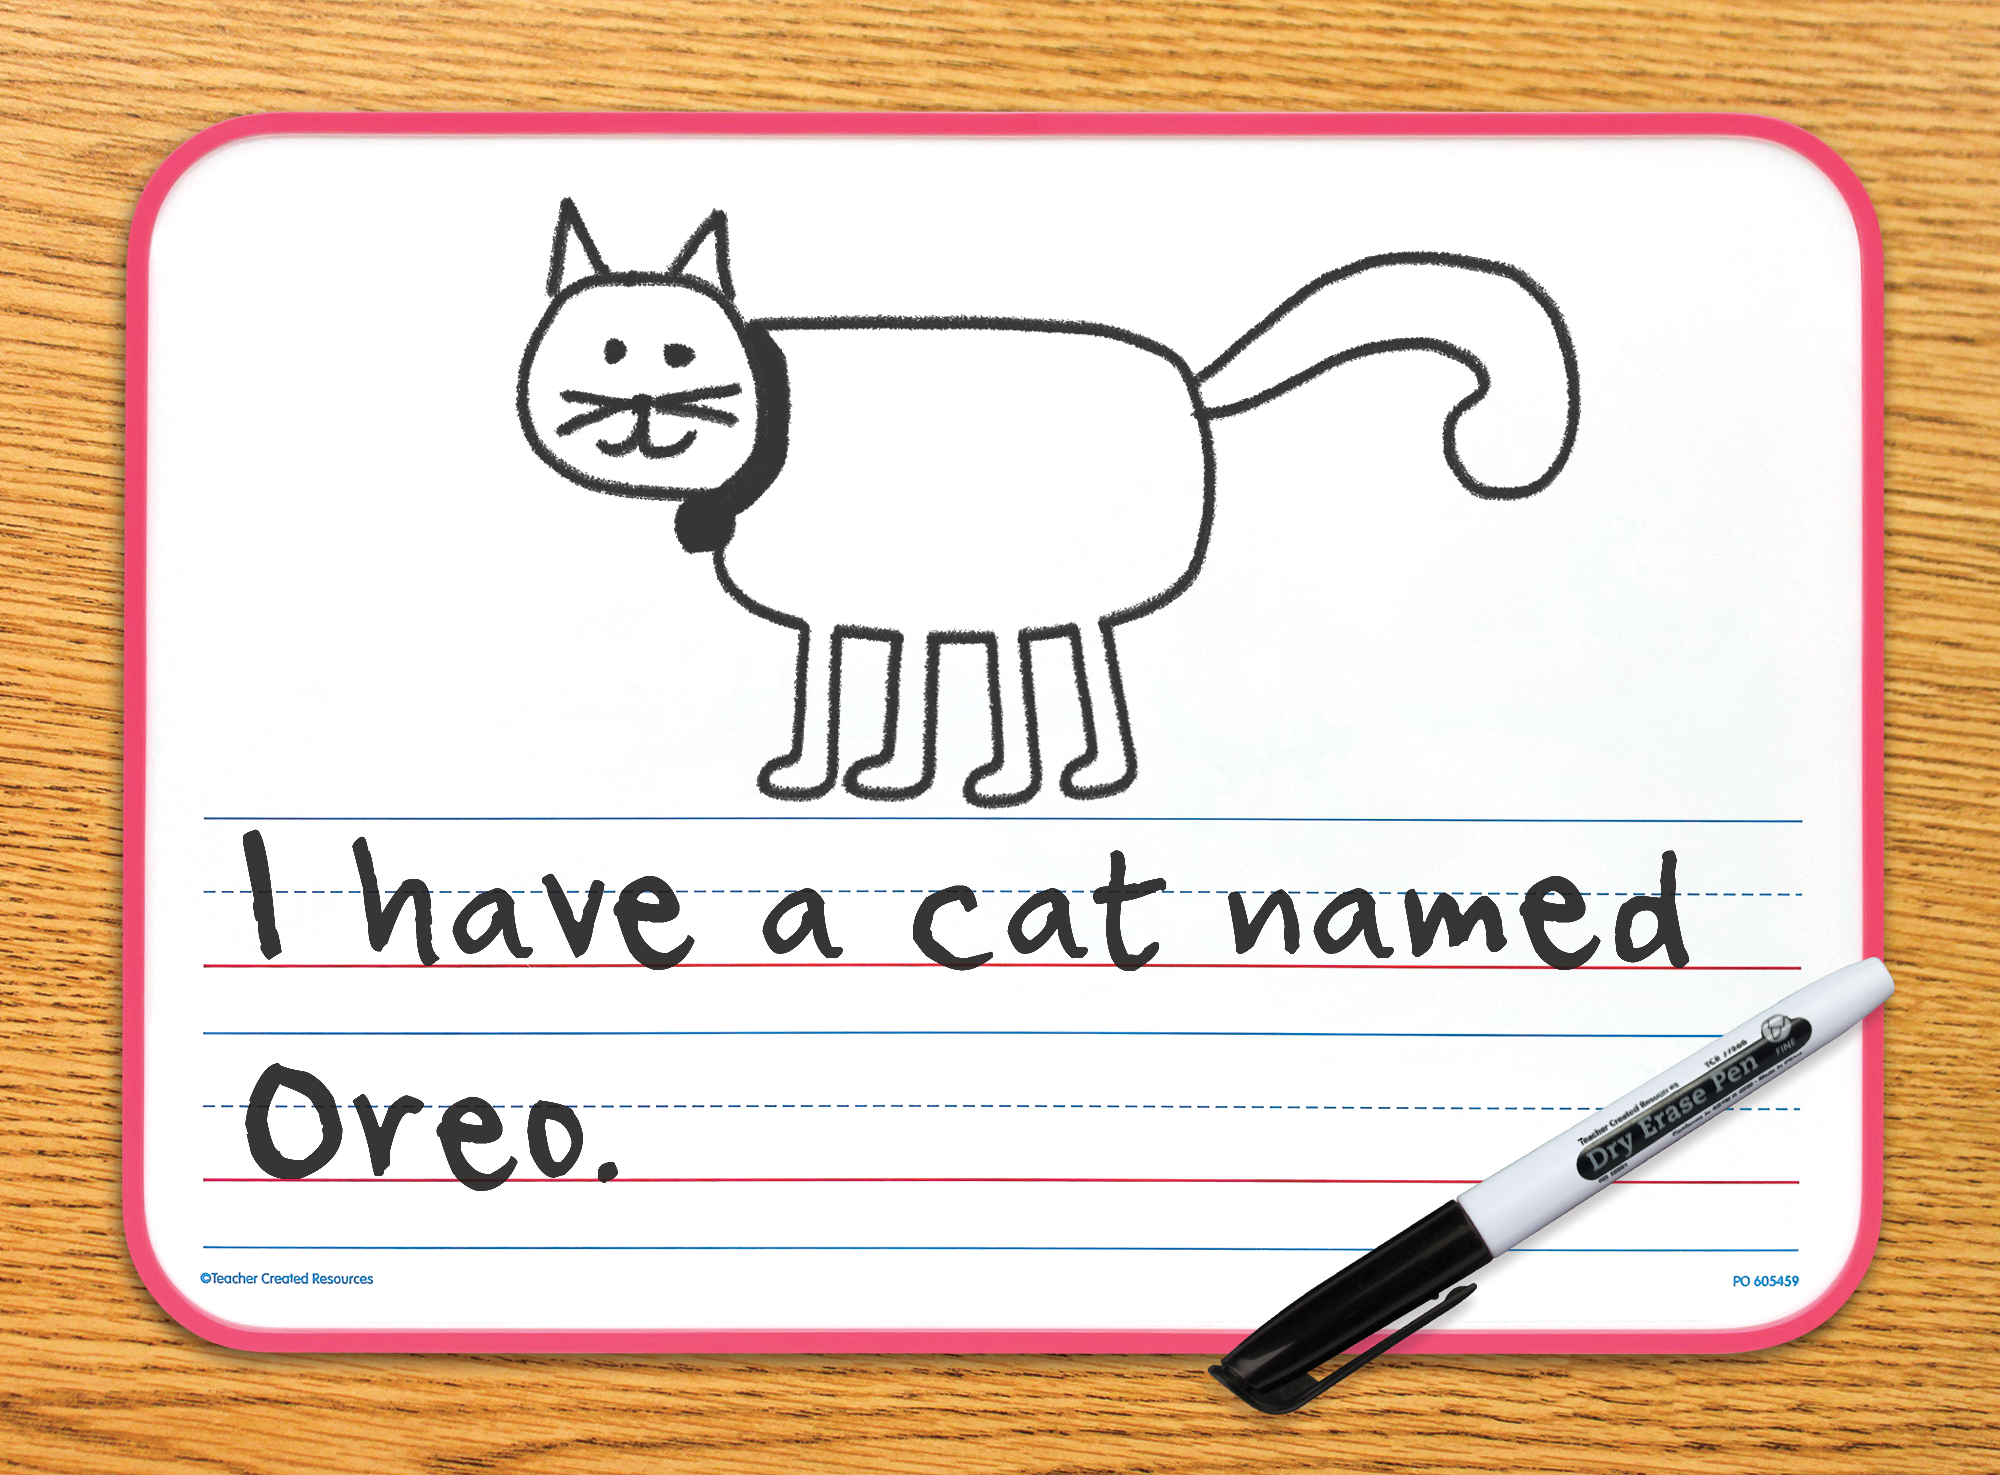 I have a cat named
Oreo.
Teacher Created Resources
TCR
Dry Erase Pen
FINE
©Teacher Created Resources
PO 605459